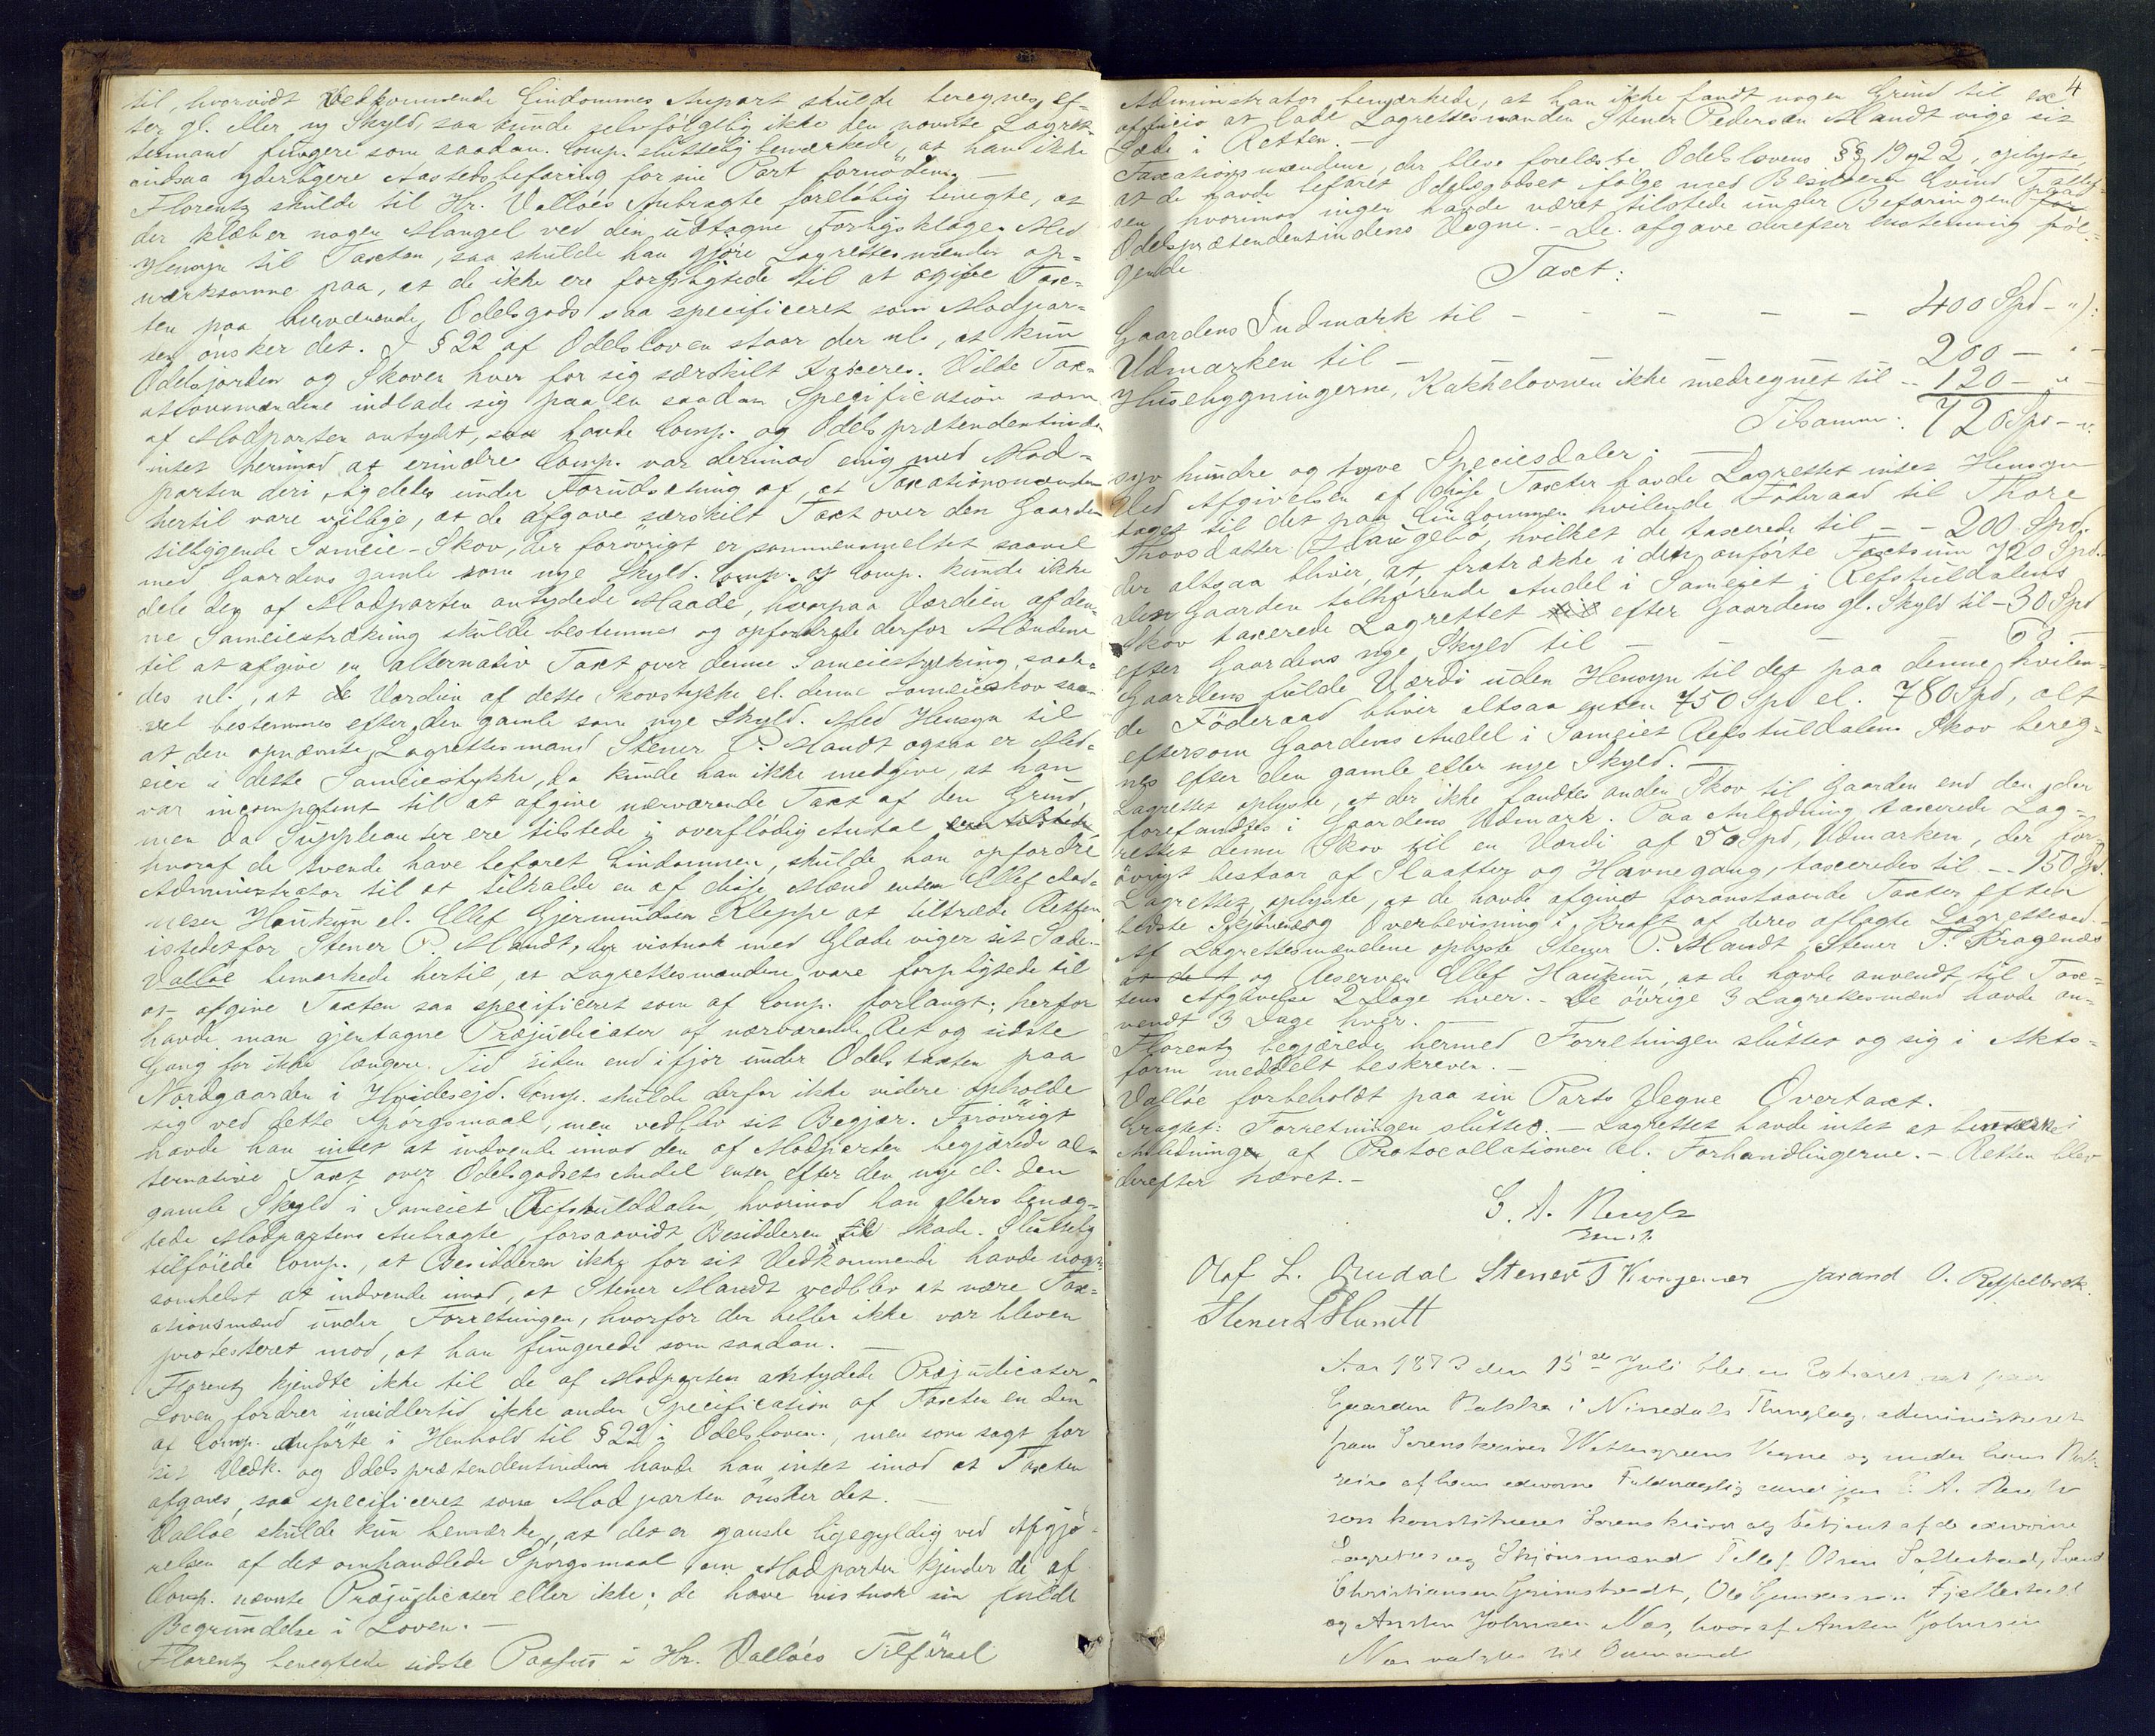 til, hvorvidt Vedkommende Eindommes Anpart skulde beregnes ef-
ter gl. eller ny Skyld, saa kunde selvfølgelig ikke den nævnte Lagret-
tesmand fungere som saadan. Comp. sluttelig bemærkede, at han ikke
ansaa yderligere Aastedsbefaring for sin Part fornöden. —
Florentz skulde til Hr. Vallöes Anbragte foreløbig benegte, at
der klæber nogen Mangel ved den udtagne Forligsklage. Med
Hensyn til Taxten, saa skulde han gjöre Lagrettesmænden op-
mærksomme paa, at de ikke ere forpligtede til at afgive Tax-
ten paa nærværende Odelsgods saa specificeret som Modpar-
ten önsker det. I § 22 af Odelsloven staar der nl., at kun
Odelsjorden og Skoven hver for sig særskilt taxeres. Vilde Tax-
ationsmændene indlade sig paa en saadan Specification som
af Modparten antydet, saa havde Comp. og Odelsprætendentinden
intet herimod at erindre. Comp. var derimod enig med Mod-
parten deri ligeledes under Forudsætning af, at Taxationsmænden
hertil vare villige, at de afgave særskilt Taxt over den Gaarden
tilliggende Sameie-Skov, der forøvrigt er sammensmeltet saavel
med Gaardens gamle som nye Skyld. Comp. kunde ikke
dele den af Modparten antydede Maade, hvorpaa Værdien af den-
ne Sameiestrækning skulde bestemmes og opfordrede derfor Mændene
til at afgive en alternativ Taxt over denne Sameiestrækning, saale-
des nl., at Værdien af dette Skovstykke el. denne Sameieskov saa-
vel bestemmes efter den gamle som nye Skyld. Med Hensyn til
at den opnævnte Lagrettesmand Stener P. Mandt ogsaa er Med-
eier i dette Sameiestykke, da kunde han ikke medgive, at han
var incompetent til at afgive nærværende Taxt af den Grund,
men da Suppleanter ere tilstede i overflödig Antal
hvoraf de tvende have befaret Eindommen, skulde han opfordre
Administrator til at tilkalde en af disse Mænd enten Ellef Aad-
nesen Haukum el. Ellef Gjermundsen Kleppe at tiltræde Retten
istedetfor Stener P. Mandt, der vistnok med Glæde viger sit Sæde. —
Vallöe bemærkede hertil, at Lagrettesmændene vare forpligtede til
at afgive Taxten saa specificeret som af Comp. forlangt; herfor
havde man gjentagne Præjudicater af nærværende Ret og sidste
Gang for ikke længere Tid siden end ifjor under Odelstaxten paa
Nordgaarden i Hvidesejd. Comp. skulde derfor ikke videre opholde
sig ved dette Spörgsmaal, men vedblev sit Begjær. Forövrigt
havde han intet at indvende imod den af Modparten begjærede al-
ternative Taxt over Odelsgodsets Andel enten efter den nye el. den
gamle Skyld i Sameiet Refstulddalen, hvorimod han ellers benæg-
tede Modpartens Anbragte, forsaavidt Besidderen til Skade. Sluttelig
tilföiede Comp., at Besidderen ikke for sit Vedkommende havde noget-
somhelst at indvende imod, at Stener Mandt vedblev at være Tax-
ationsmand under Forretningen, hvorfor der heller ikke var bleven
protesteret mod, at han fungerede som saadan. —
Florentz kjendte ikke til de af Modparten antydede Præjudicater.
Loven fordrer imidlertid ikke anden Specification af Taxten en den
af Comp. anförte i Henhold til § 22 i Odelsloven, men som sagt for
sit Vedk. og Odelsprætendentinden havde han intet imod at Taxten
afgaves saa specificeret som Modparten önsker det. —
Vallöe skulde kun bemærke, at det er ganske ligegyldig ved Afgjö-
relsen af det omhandlede Spörgsmaal om Modparten kjender de af
Comp. nævnte Præjudicater eller ikke; de have vistnok sin fulde
Begrundelse i Loven. —
Florentz benegtede sidste Passus i Hr. Vallöes Tilförsel
4
Administrator bemærkede, at han ikke fandt nogen Grund til ex
officio at lade Lagrettesmanden Stener Pedersen Mandt vige sit
Sæde i Retten. —
Taxationsmændene, der bleve forelæste Odelslovens §§ 19 og 22, oplyste,
at de havde befaret Odelsgodset ifölge med Besidderen Evind Tallef-
sen hvorimod ingen havde været tilstede under Befaringen paa
Odelsprætendentindens Vegne. — De afgave derefter enstemmig föl-
gende
Taxt:
Gaardens Indmark til — — — — — 400 Spd — " :
Udmarken til — 200 — " —
Husebygningerne, Kakkelovnen ikke medregnet til — 120 — " —
Tilsamm: 720 Spd — ".
syv hundre og tyve Speciesdaler. —
Ved Afgivelsen af disse Taxter havde Lagrettet intet Hensyn
taget til det paa Eindommen hvilende Föderaad til Thore
Thorsdatter Haugebö, hvilket de taxerede til — — 200 Spd.
der altsaa bliver at fratrække i den anförte Taxtsum 720 Spd.
Den Gaarden tilhörende Andel i Sameiet i Refstuldalens
Skov taxerede Lagrettet efter Gaardens gl. Skyld til — 30 Spd
efter Gaardens nye Skyld til — — — 60 —
Gaardens fulde Værdi uden Hensyn til det paa denne hvilen-
de Föderaad bliver altsaa enten 750 Spd el. 780 Spd, alt
eftersom Gaardens Andel i Sameiet Refstuldalens Skov bereg-
nes efter den gamle eller nye Skyld. —
Lagrettet oplyste, at der ikke fandtes anden Skov til Gaarden end den der
forefandtes i Gaardens Udmark. Paa Anledning taxerede Lag-
rettet denne Skov til en Værdi af 50 Spd, Udmarken, der for-
övrigt bestaar af Slaatter og Havnegang taxeredes til — 150 Spd.
Lagrettet oplyste, at de havde afgivet foranstaaende Taxter efter
bedste Skjönende og Overbevisning i Kraft af deres aflagte Lagrettesed. —
Af Lagrettesmændene oplyste Stener P. Mandt, Stener T. Kragenæs
og Reserven Ellef Haukum, at de havde anvendt til Tax-
tens Afgivelse 2 Dage hver. — De övrige 3 Lagrettesmænd havde an-
vendt 3 Dage hver. —
Florentz begjærede hermed Forretningen sluttet og sig i Akts-
form meddelt beskreven. —
Vallöe forbeholdt paa sin Parts Vegne Overtaxt.
Eragtet: Forretningen sluttes. — Lagrettet havde intet at bemærke i
Anledningen af Protocollationen el. Forhandlingerne. — Retten blev
derefter hævet. —
Olaf L. Stener T Kragenæs Jarand O.
Stener P Mandt
Aar 1873 den 15de Juli blev en Extraret sat paa
Gaarden i Nissedals Thinglag, administreret
paa Sorenskriver Vegne og under hans
af hans edsvorne Fuldmægtig cand jur
som konstitueret Sorenskriver og betjent af de edsvorne
Lagrettes og Skjönsmænd Tellef Olsen
Christiansen Grimstvedt, Ole
og Johnsen Næs, hvoraf Johnsen
Næs valgtes til